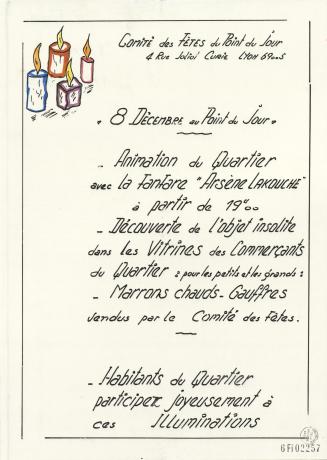 Comité des Fêtes du Point du Jour
4 Rue Joliot Curie Lyon 69005
" 8 Décembre au Point du Jour "
_ Animation du Quartier
avec la fanfare "Arsène LAKOUCHE"
à partir de 19h00
_ Découverte de l'objet insolite
dans les Vitrines des Commerçants
du Quartier : pour les petits et les grands :
_ Marrons chauds - Gauffres
vendus par le Comité des Fêtes.
_ Habitants du Quartier
participez joyeusement à
ces Illuminations
6FI02257